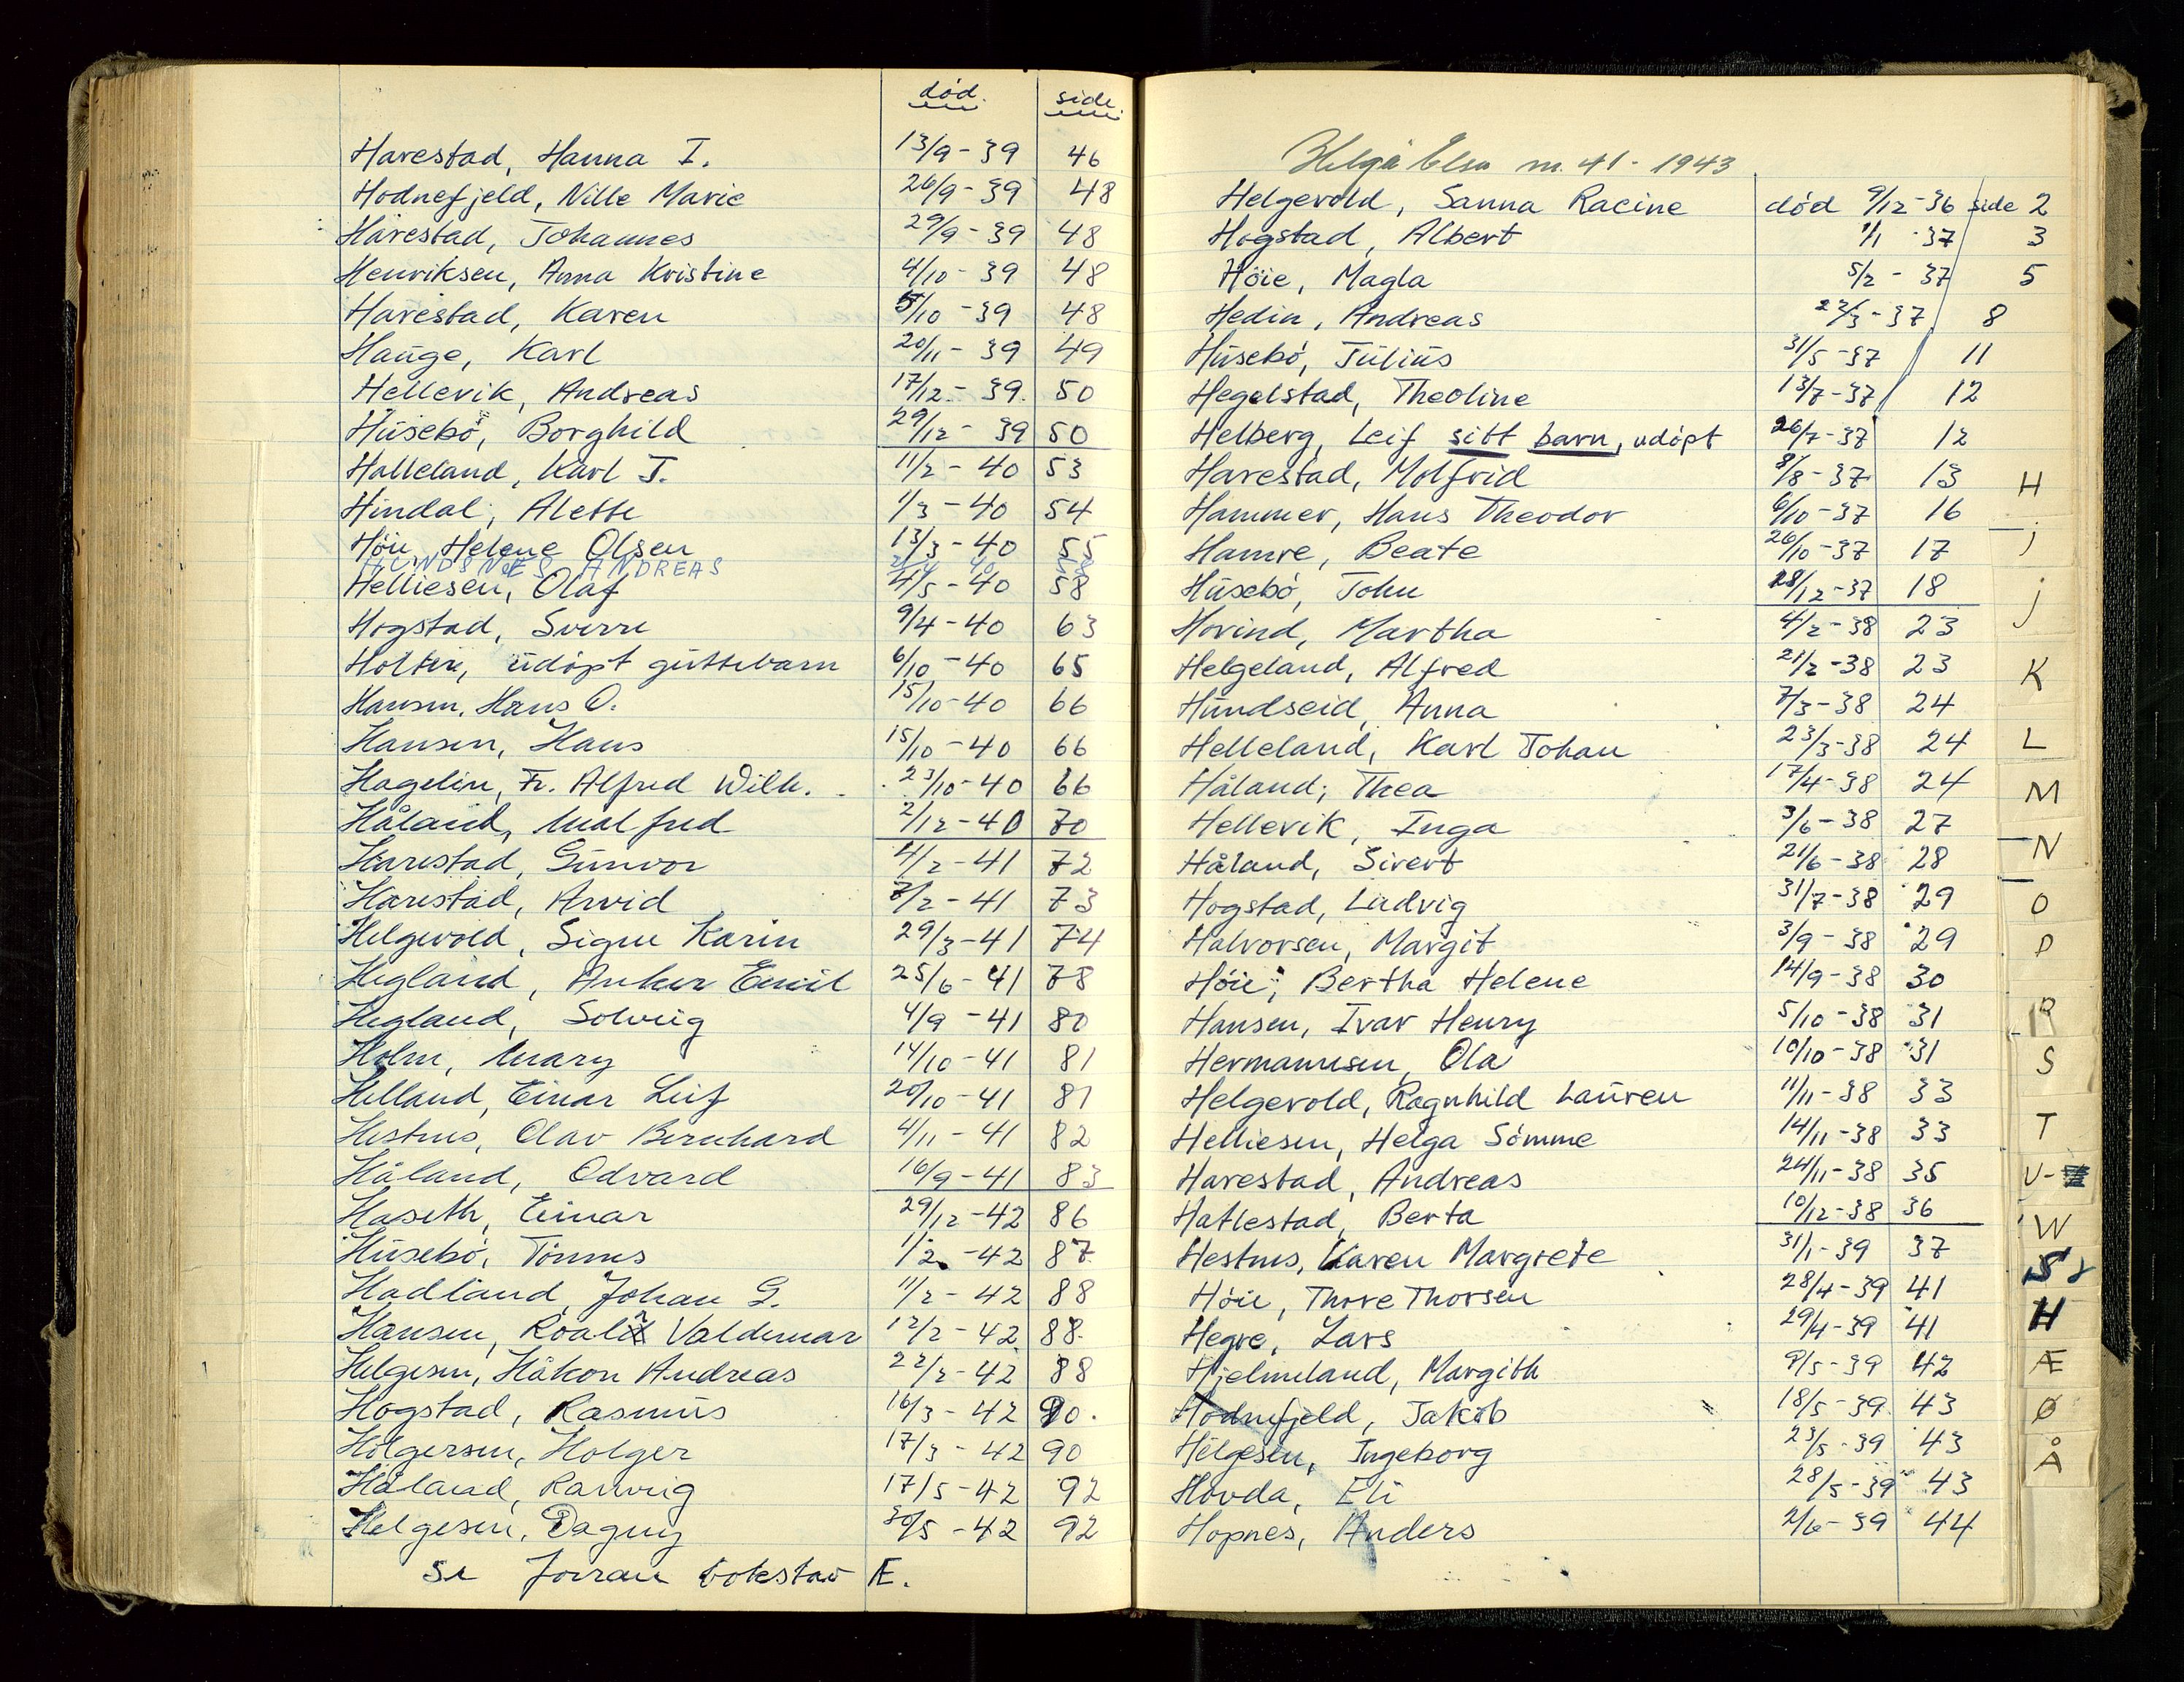 død. side.
Harestad, Hanna I. 13/9 - 39 46
Hodnefjeld, Nille Marie 26/9 - 39 48
Harestad, Johannes 29/9 - 39 48
Henriksen, Anna Kristine 4/10 - 39 48
Harestad, Karen 5/10 - 39 48
Hauge, Karl 20/11 - 39 49
Hellevik, Andreas 17/12 - 39. 50
Husebø, Borghild 29/12 - 39 50
Halleland, Karl J. 11/2 - 40 53
Hindal, Alette 1/3 - 40 54
Høie, Helene Olsen 13/3 - 40 55
HUNDSNES ANDREAS
Helliesen, Olaf 4/5 - 40 58
Hogstad, Sverre 9/4 - 40 63
Holten, udøpt guttebarn 6/10 - 40 65
Hansen, Hans O. 15/10 - 40 66
Hansen, Hans 15/10 - 40 66
Hagelin, Fr. Alfred Wilh. 23/10 - 40 66
Håland, Malfred 2/12 - 40 70
Harestad, Gunvor 4/2 - 41 72
Harestad, Arvid 7/2 - 41 73
Helgevold, Signe Karin 29/3 - 41 74
Hegland, Anker Emil 25/6 - 41 78
Hegland, Solveig 4/9 - 41 80
Holm, Mary 14/10 - 41 81
Helland, Einar Leif 20/10 - 41 81
Hestnes, Olav Bernhard 4/11 - 41 82
Håland, Odvard 16/9 - 41 83
Haseth, Einar 29/12 - 42 86
Husebø, Tønnes 1/2 - 42 87
Hadland, Johan G. 11/2 - 42 88
Hansen, Roald Valdemar 12/2 - 42 88.
Helgesen, Håkon Andreas 22/2 - 42 88
Hogstad, Rasmus 16/3 - 42 90.
Holgersen, Holger 17/3 - 42 90
Håland, Ranveig 17/5 - 42 92
Helgesen, Dagny 30/5 - 42 92
Se foran bokstav Æ.
Helgå Elsa nr. 41 - 1943
Helgevold, Sanna Racine død 9/12 - 36 side 2
Hogstad, Albert 1/1 - 37 3
Høie, Magla 5/2 - 37 5
Hedin, Andreas 22/3 - 37 8
Husebø, Julius 31/5 - 37 11
Hegelstad, Theoline 13/7 - 37 12
Helberg, Leif sitt barn, udøpt 26/7 - 37 12
Harestad, Molfrid 8/8 - 37 13
Hammer, Hans Theodor 6/10 - 37 16
Hamre, Beate 26/10 - 37 17
Husebø, John 28/12 - 37 18
Hovind, Martha 4/2 - 38 23
Helgeland, Alfred 21/2 - 38 23
Hundseid, Anna 7/3 - 38 24
Helleland, Karl Johan 23/3 - 38 24
Håland, Thea 17/4 - 38 24
Hellevik, Inga 3/6 - 38 27
Håland, Sivert 21/6 - 38 28
Hogstad, Ludvig 31/7 - 38 29
Halvorsen, Margit 3/9 - 38 29
Høie, Bertha Helene 14/9 - 38 30
Hansen, Ivar Henry 5/10 - 38 31
Hermannsen, Ola 10/10 - 38 31
Helgevold, Ragnhild Lauren 11/11 - 38 33
Helliesen, Helga Sømme 14/11 - 38 33
Harestad, Andreas 24/11 - 38 35
Hatlestad, Berta 10/12 - 38 36
Hestnes, Karen Margrete 31/1 - 39 37
Høie, Thore Thorsen 28/4 - 39 41
Hegre, Lars 29/4 - 39 41
Hjelmeland, Margith 9/5 - 39 42
Hodnefjeld, Jakob 18/5 - 39 43
Helgesen, Ingeborg 23/5 - 39 43
Hovda, Eli 28/5 - 39 43
Hopnes, Anders 2/6 - 39 44
H
i
j
K
L
M
N
O
P
R
S
T
U-
W
H
Æ
Ø
Å